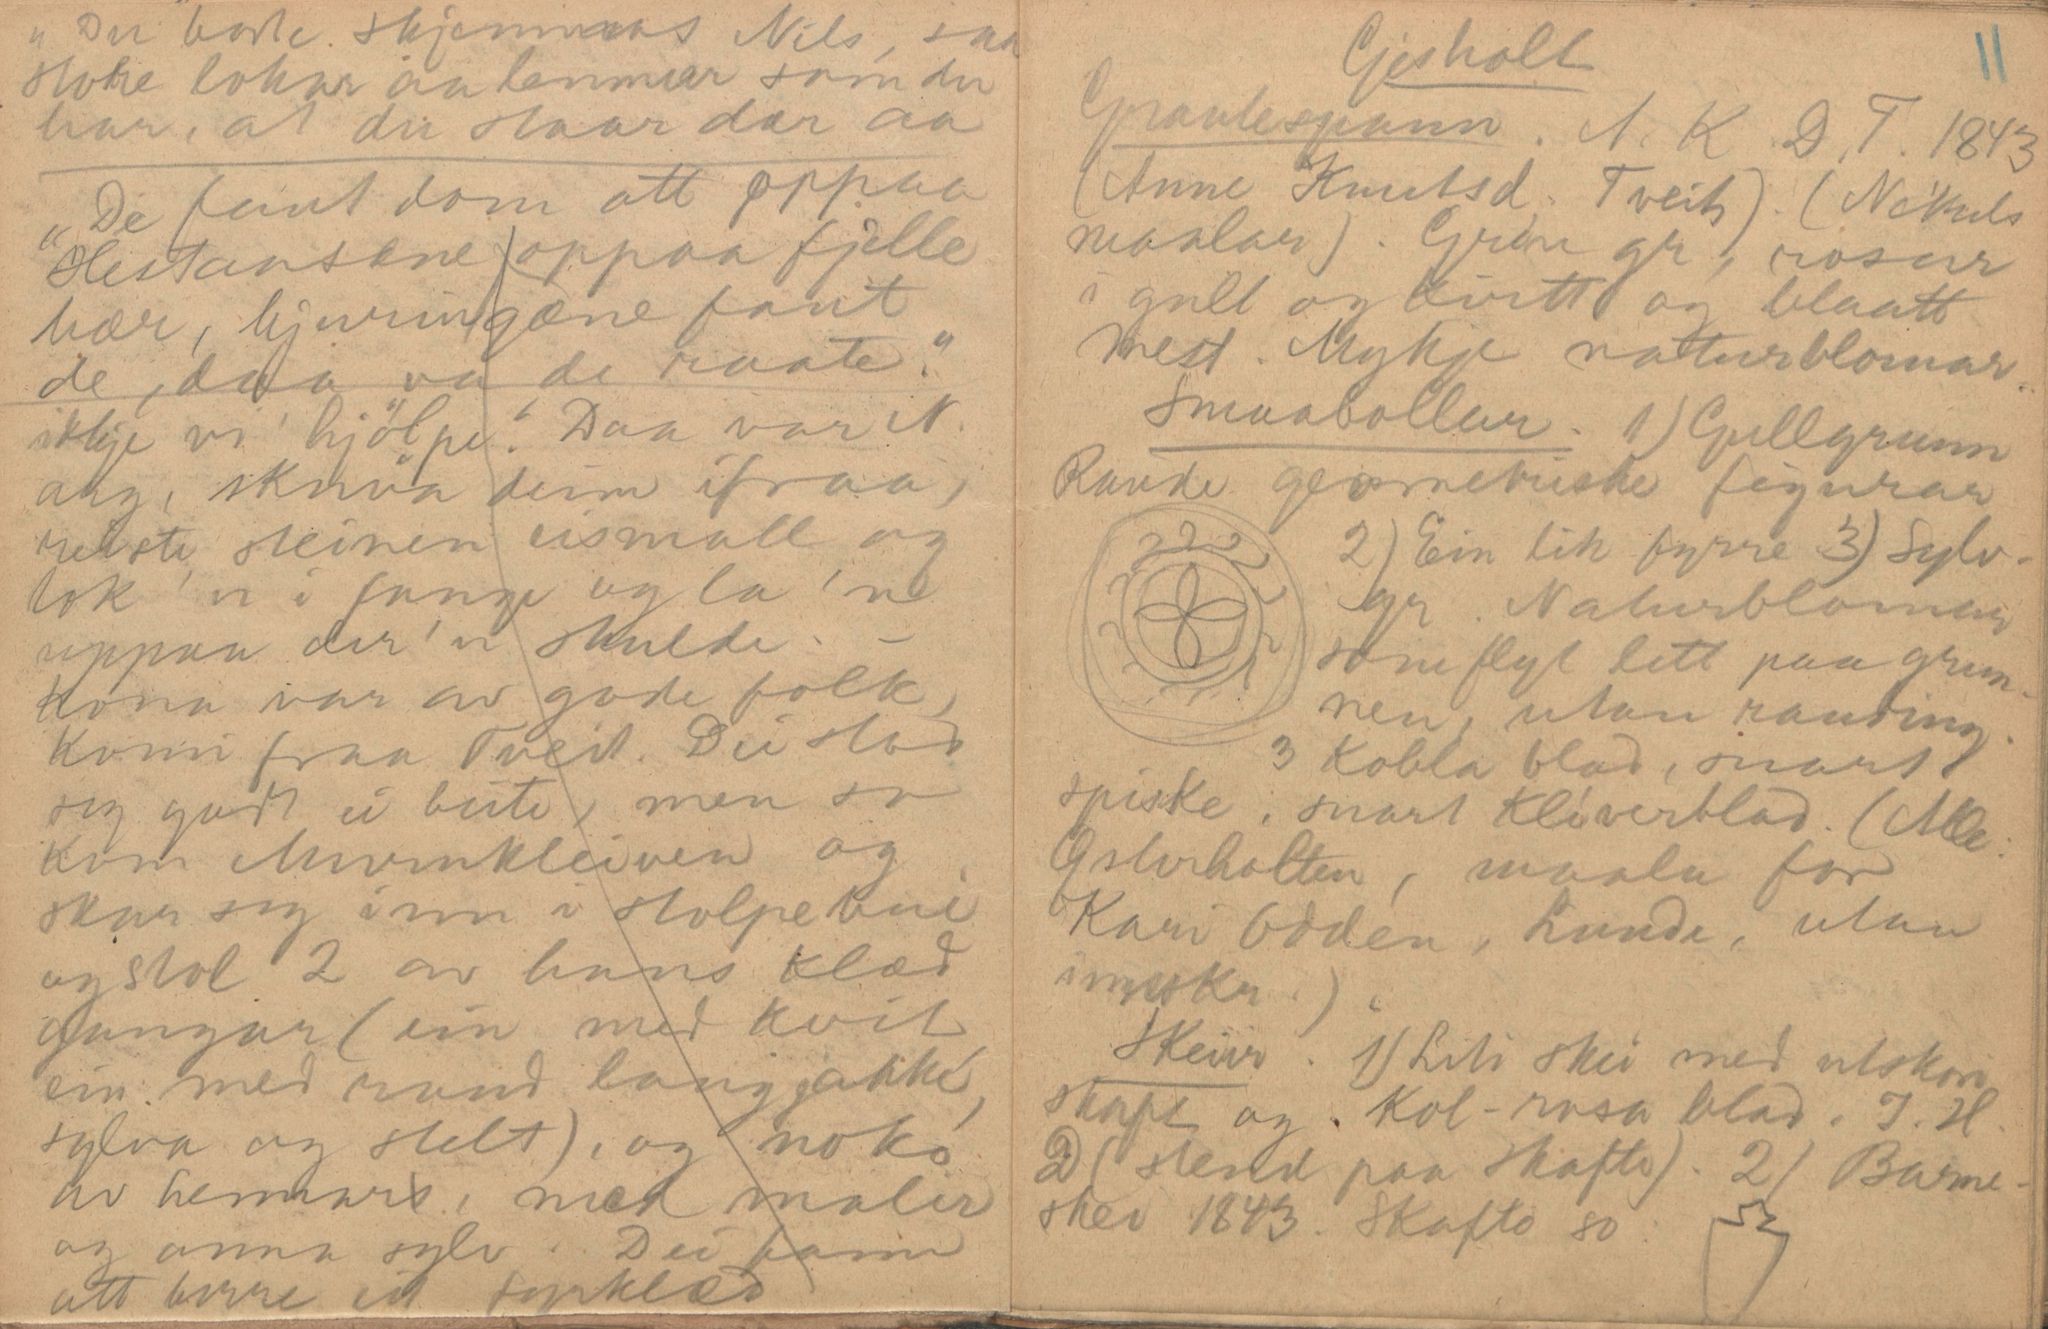 „Du" bode skjemmas Nils, saa
store lokar aa lemmar som du
har, at du staar dær aa
„De fant dom att oppaa
Hestanskene) oppaa fjelle
hær, hjuringæne fant
de, daa va de raate."
ikkje vi' hjölpe". Daa var N.
arg, skuva deim ifraa,
reiste steinen eismall og
tok 'n i fange og la 'ne
uppaa der 'n skulde. –
Kona var av gode folk,
Komi fraa Tveit. Dei stod
seg godt ei beite, men so
kom Murukleiven og
skar seg inn i stolpebui
og stol 2 av hans klæd
gangar (ein med kvit
ein med raud langjakke,
sylva og stelt), og noko
av hennars, med malir
og anna sylv. Dei fann
att berre eit fyrklæd
11
Gjesholt
Grautespann. A. K. D. T. 1843
(Anne Knutsd. Tveit). (Nikuls
maalar). Grön gr, rosur
i gult og kvitt og blaatt
mest. Mykje naturblomar.
Smaabollur. 1) Gullgrunn
Raude geometriske figurar
2) Ein lik fyrre 3) Sylv-
gr. Naturblomar
som flyt lett paa grun-
nen, utan rauding.
3 Kobla blad, snart
spiske, snart kliverblad. (Mle.
Gsterholten, maala for
Kari Oddén, Lunde, utan
)
Skeiir. 1) Liti skei med utskori
skaft og. Kol-rosa blad. I. H.
D (stend paa skafte). 2) Barne-
skei 1843. Skafte so